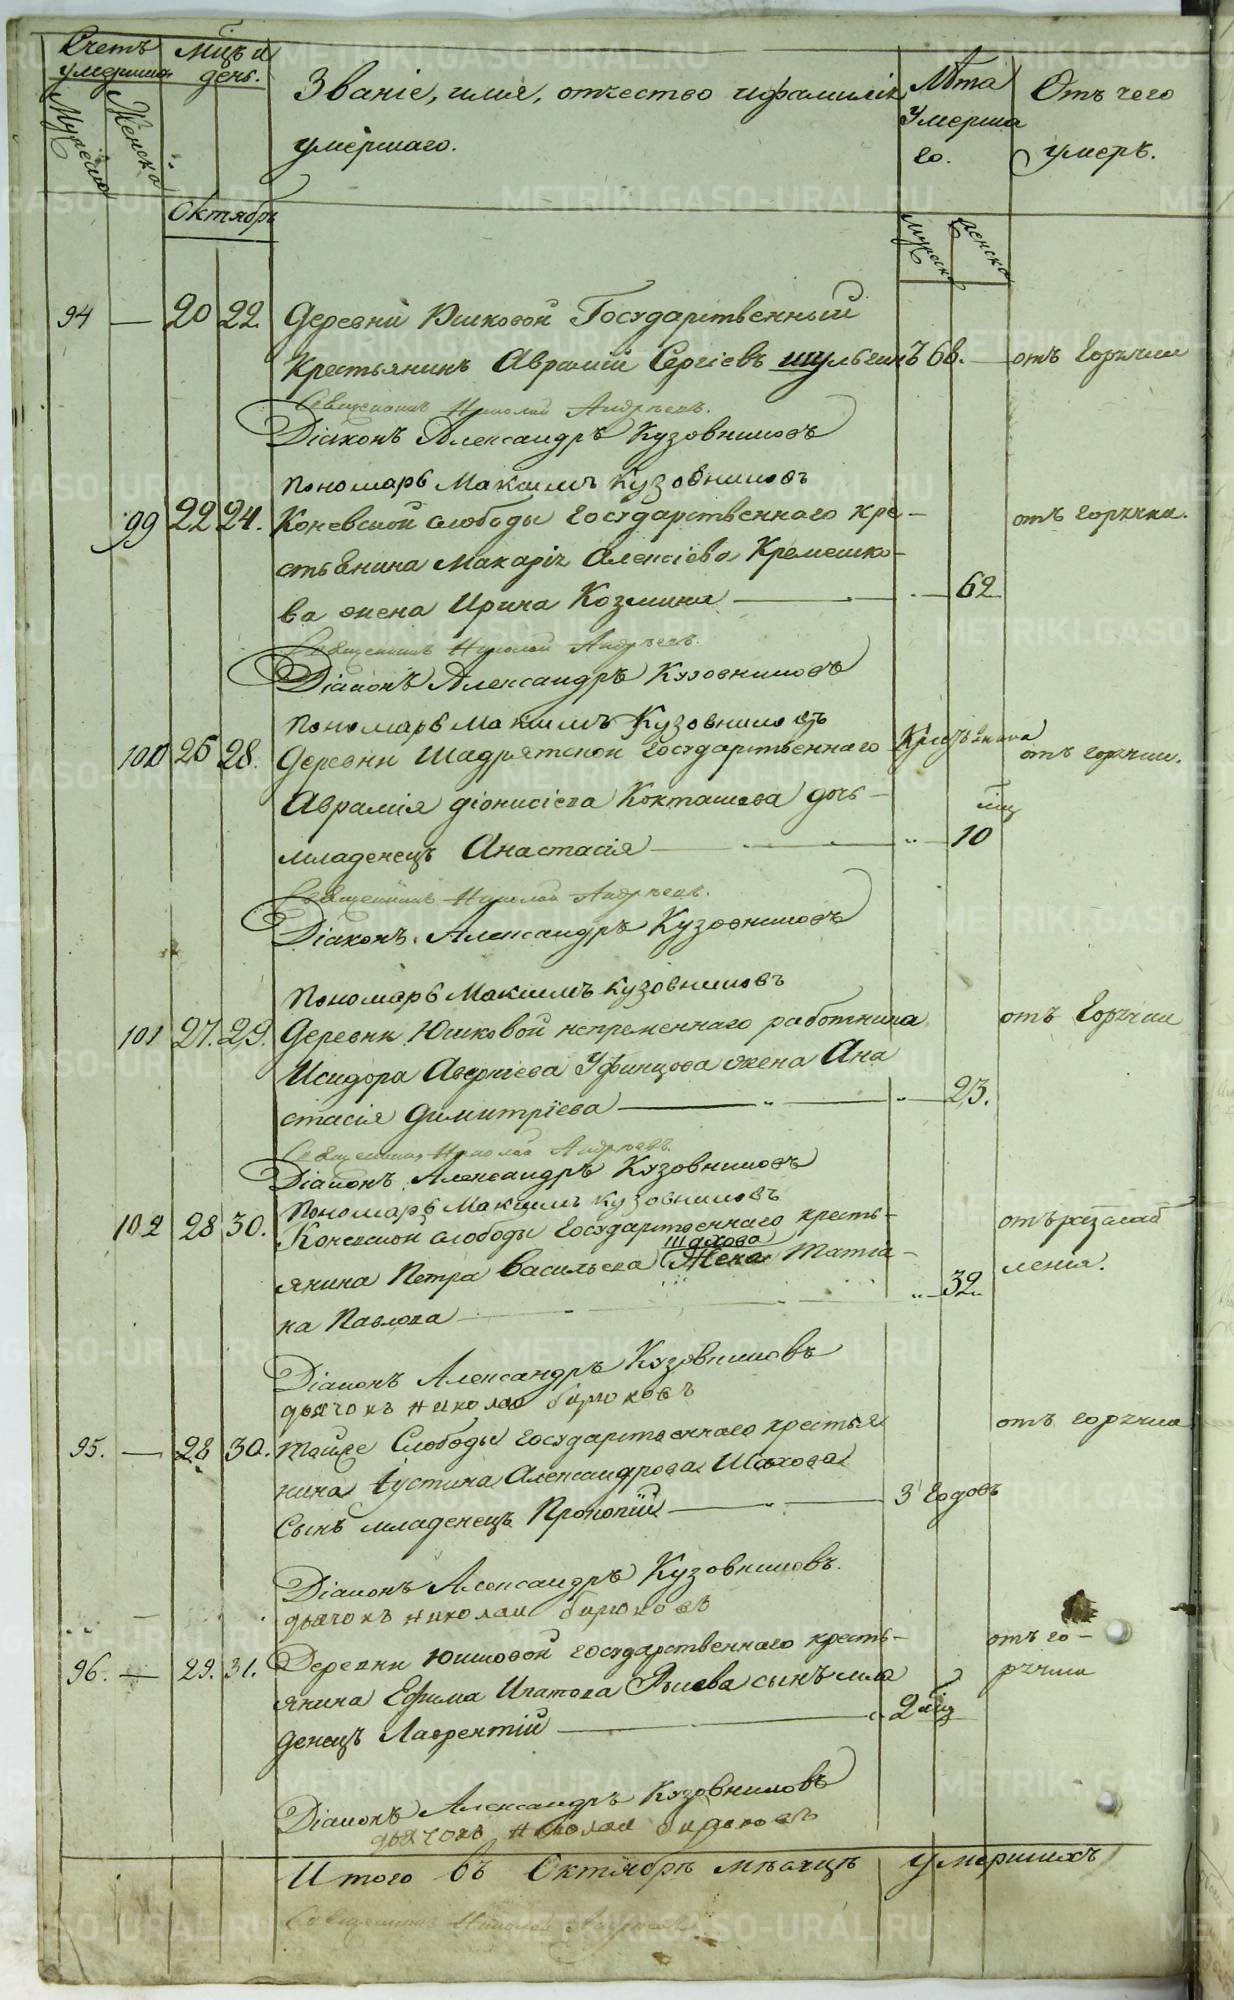 Счетъ умершихъ
Мужеска
Женска
Мѣцъ и день.
Званіе, имя, отчество и фамилія умершаго.
Лѣта умершаго.
Отъ чего умеръ.
Октябрь
Мужеска
Женска
94 — 20 22. Деревни Юшковой Государственный
Крестьянинъ Аврамій Сергіевъ Шульгинъ 68. — отъ Горячки
Священникъ Николай Андреевъ.
Діаконъ Александръ Кузовниковъ
Пономарь Максимъ Кузовниковъ
99 22 24. Коневской слободы Государственнаго кре- отъ горячки.
стьянина Макарія Алексіева Кремешко-
ва жена Ирина Козмина — 62
Священникъ Николай Андреевъ.
Діаконъ Александръ Кузовниковъ
Пономарь Максимъ Кузовниковъ
100 25 28. Деревни Шадрятской Государственнаго Крестьянина отъ горячки.
Аврамія Діонисіева Кокташева дочь мѣц
младенецъ Анастасія — 10
Священникъ Николай Андреевъ.
Діаконъ Александръ Кузовниковъ
Пономарь Максимъ Кузовниковъ
101 27. 29. Деревни Юшковой непременнаго работника отъ Горячки
Исидора Аверкіева Уфинцова жена Ана
стасія Димитріева — 23.
Священникъ Николай Андреевъ.
Діаконъ Александръ Кузовниковъ
Пономарь Максимъ Кузовниковъ
102 28 30. Коневской слободы Государственнаго кресть- отъ разслаб
Шахова
янина Петра Васильева Жена Татіа- ленія.
на Павлова — 32.
Діаконъ Александръ Кузовниковъ
дьячокъ Николай бирюковъ
95. — 28 30. тойже Слободы государственнаго крестья отъ горячки
нина Іустина Александрова Шахова
Сынъ младенецъ Прокопій — 3 Годовъ
Діаконъ Александръ Кузовниковъ.
дьячокъ Николаи бирюковъ
96. — 29. 31. Деревни Юшковой государственнаго кресть- отъ го-
янина Ефима Игатова сынъ мла рячки
денецъ Лаврентій — 2 мѣц
Діаконъ Александръ Кузовниковъ
дьячокъ Николаи бирюковъ
Итого въ Октябрѣ мѣсяцѣ умершихъ
Священникъ Николай Андреевъ
METRIKI.GASO-URAL.RU